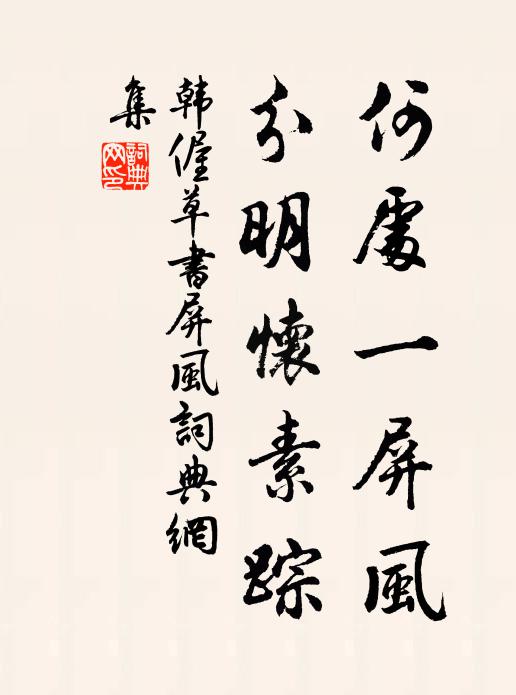 何處一屏風
分明懷素踪
韓偓草書屏風詞典網
集
詞典
网印